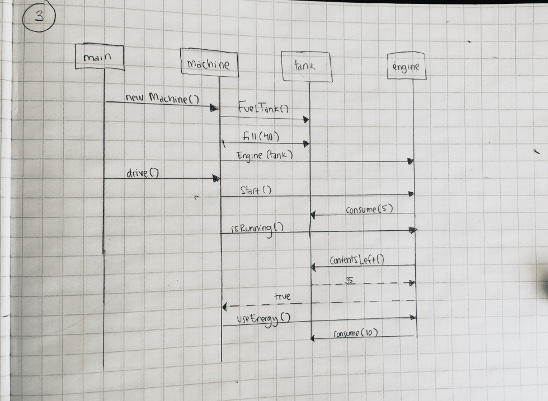 3
main
machine
tank
engine
new Machine()
FuelTank()
fill(40)
Engine(tank)
drive()
Start()
consume(5)
isRunning()
contentsLeft()
35
true
useEnergy()
consume(10)